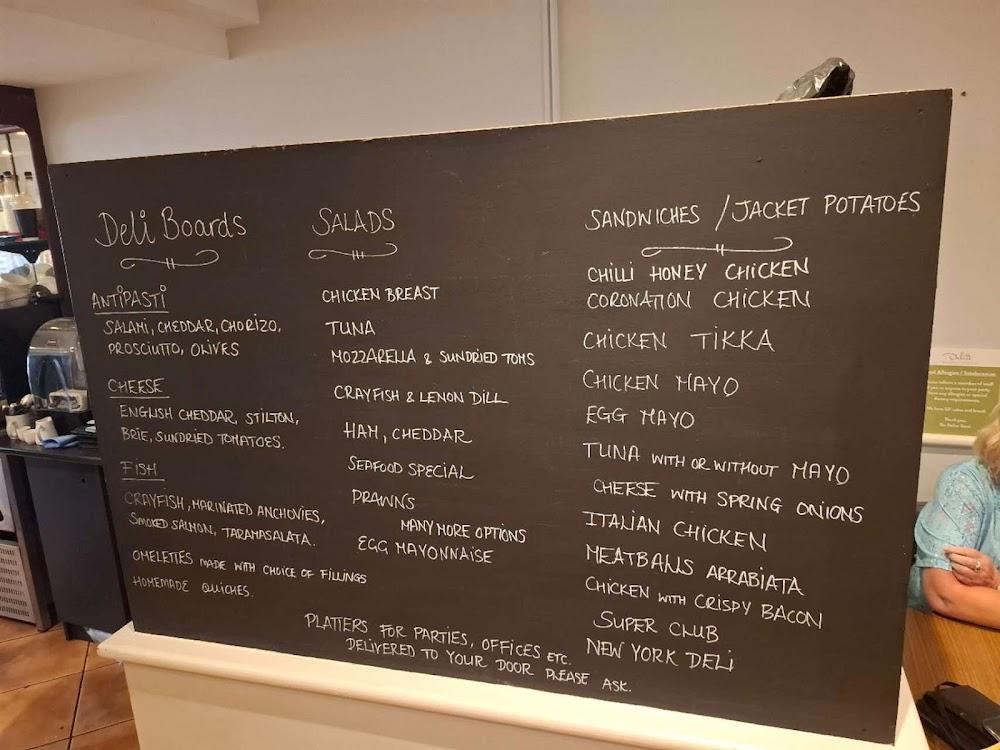 Deli Boards
ANTIPASTI
SALAMI, CHEDDAR, CHORIZO,
PROSCIUTTO, OLIVES
CHEESE
ENGLISH CHEDDAR, STILTON,
BRIE, SUNDRIED TOMATOES.
FISH
CRAYFISH, MARINATED ANCHOVIES,
SMOKED SALMON, TARAMASALATA.
OMELETTES MADE WITH CHOICE OF FILLINGS
HOMEMADE QUICHES.
SALADS
CHICKEN BREAST
TUNA
MOZZARELLA & SUNDRIED TOMS
CRAYFISH & LEMON DILL
HAM, CHEDDAR
SEAFOOD SPECIAL
PRAWNS
MANY MORE OPTIONS
EGG MAYONNAISE
SANDWICHES / JACKET POTATOES
CHILLI HONEY CHICKEN
CORONATION CHICKEN
CHICKEN TIKKA
CHICKEN MAYO
EGG MAYO
TUNA WITH OR WITHOUT MAYO
CHEESE WITH SPRING ONIONS
ITALIAN CHICKEN
MEATBALLS ARRABIATA
CHICKEN WITH CRISPY BACON
SUPER CLUB
NEW YORK DELI
PLATTERS FOR PARTIES, OFFICES ETC.
DELIVERED TO YOUR DOOR PLEASE ASK.